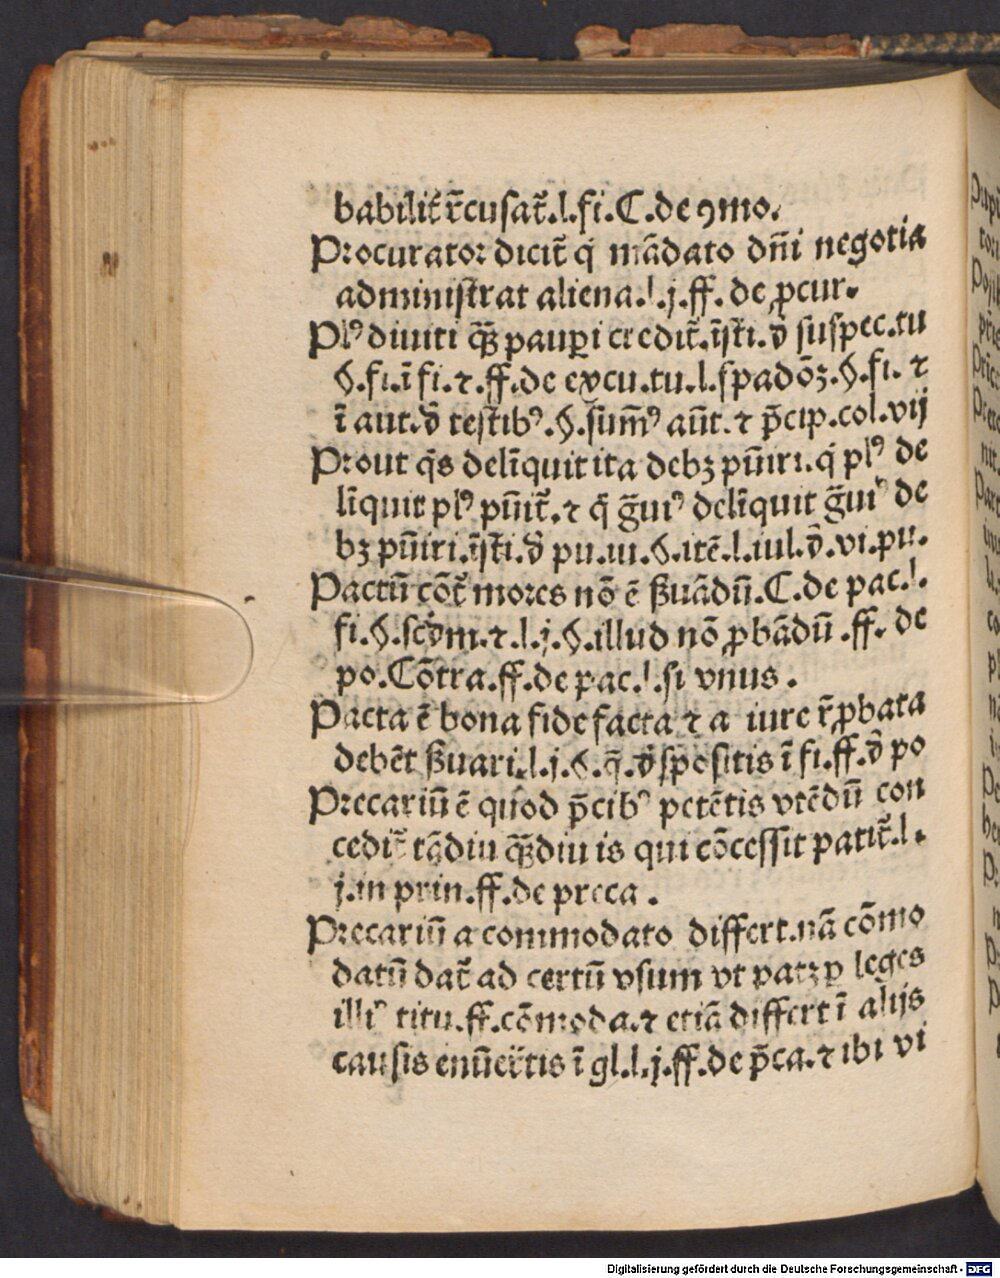 babilit̃ r̃cusat̃.l.fi.C.de ꝯmo.
Procurator dicit̃ q̇ mādato dñi negotia
administrat aliena.l.j.ff. de ꝓcur.
Plꝰ diuiti qꝫ̄ pauꝑi credit̃.īsti.ď suspec.tu
§.fi.ī fi.⁊.ff.de excu.tu.l.spadōꝫ.§.fi. ⁊
ī aut.ď testibꝰ.§.sum̄ꝰ aūt.⁊ p̄cip.col.vij
Prout q̇s delīquit ita debꝫ pūiri.q̇ plꝰ de
līquit plꝰ pūit̃.⁊ q̇ g̃uiꝰ delīquit g̃uiꝰ de
bꝫ pūiri.īsti.ď pu.iu.§.itē.l.iul.ď.vi.pu.
Pactū cōt̃ mores nō ē ẜuādū.C.de pac.l.
fi.§.scďm.⁊.l.j.§.illud nō ꝓbādū.ff. de
po.Cōtra.ff.de pac.l.si vnus.
Pacta ē bona fide facta ⁊ a iure r̃ꝓbata
debēt ẜuari.l.j.§.q̄.ďspositis ī fi.ff.ď po
Precariū ē quod p̄cibꝰ petētis vtēdū con
cedit̃ tādiu qꝫ̄diu is qui cōcessit patit̃.l.
j.in prin.ff.de preca.
Precariū a commodato differt.nā cōmo
datū dat̃ ad certū vsum vt patꝫ ꝑ leges
illiꝰ titu.ff.cōmoda.⁊ etiā differt ī alijs
causis enūer̃tis ī gl.l.j.ff.de p̄ca.⁊ ibi vi
Digitalisierung gefördert durch die Deutsche Forschungsgemeinschaft - DFG